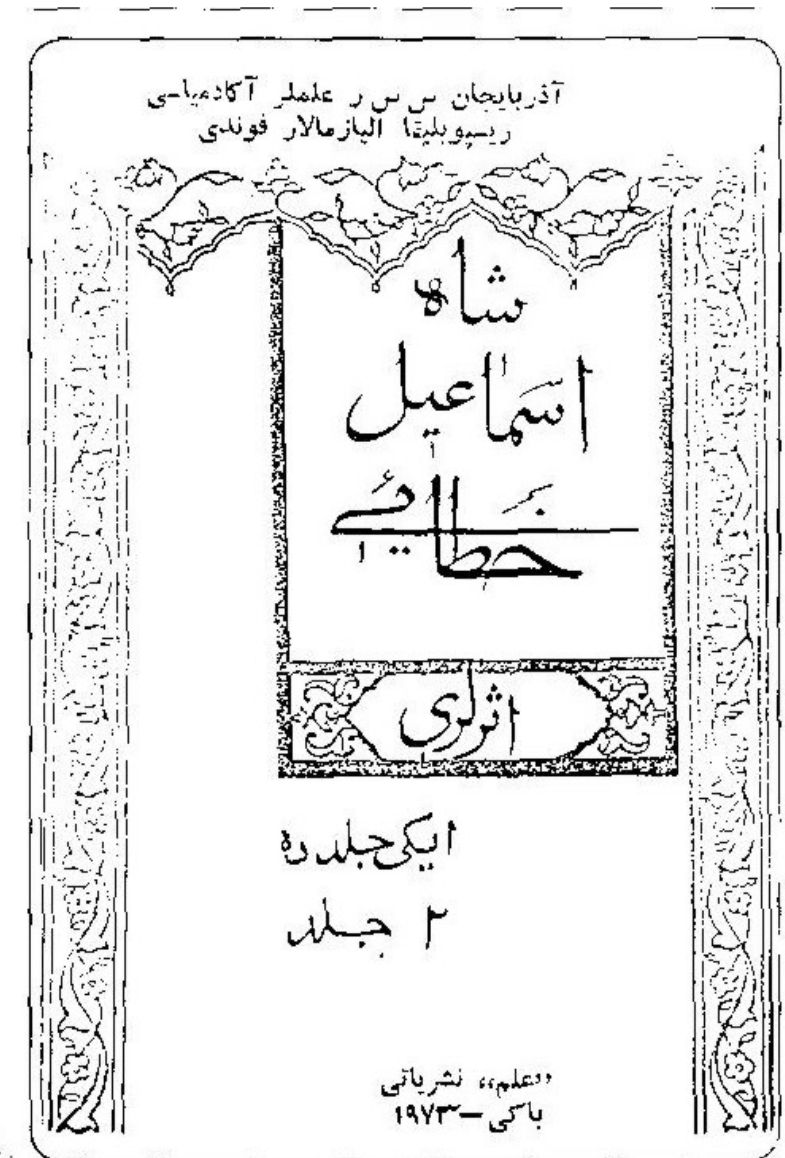 آذربایجان س س ر علملر آکادمیاسی
ریسپوبلیقا الیازمالار فوندی
شاه
اسماعیل
خطائی
اثرلری
ایکی جلد ده
۲ جلد
«علم» نشریاتی
باکی – ۱۹۷۳